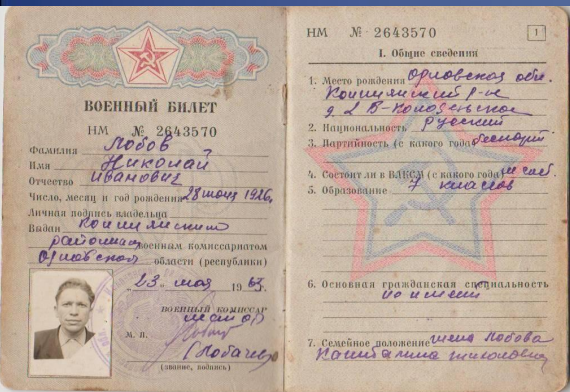 ВОЕННЫЙ БИЛЕТ
НМ № 2643570
Фамилия Лобов
Имя Николай
Отчество Иванович
Число, месяц и год рождения 28 1926
Личная подпись владельца
Выдан
военным комиссариатом
Орловской области (республики)
„23" мая 196
ВОЕННЫЙ КОМИССАР
майор
М. П.
(звание, подпись)
НМ № 2643570
1
I. Общие сведения
1. Место рождения Орловская обл.
р-н
д.
2. Национальность русский
3. Партийность (с какого года) беспарт.
4. Состоит ли в ВЛКСМ (с какого года)
5. Образование 7 классов
6. Основная гражданская специальность
не имеет
7. Семейное положение жена Лобова